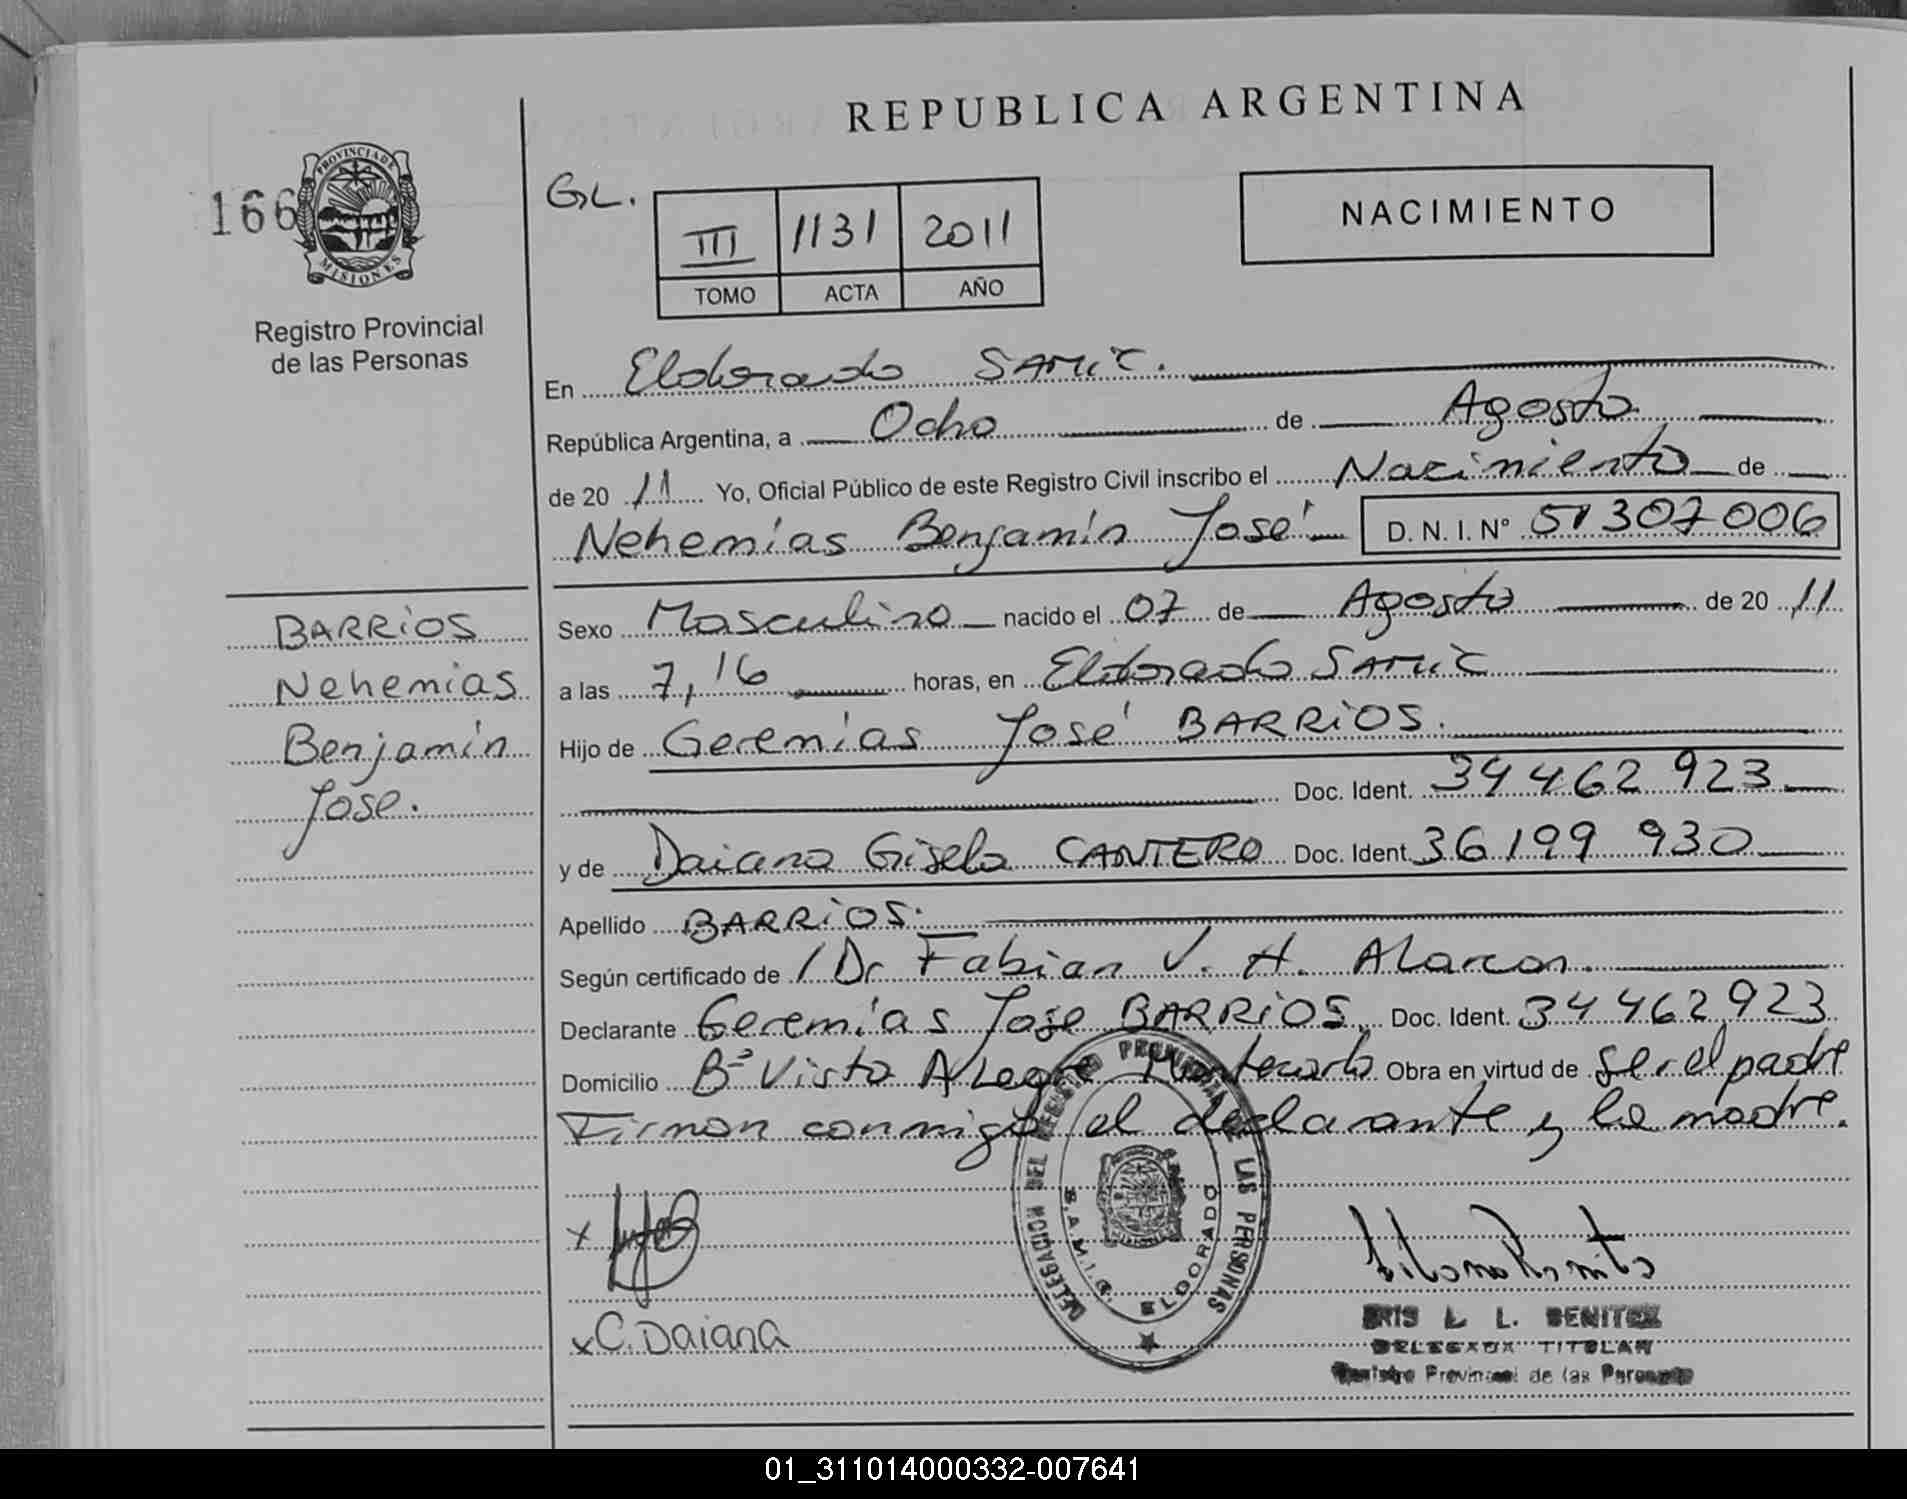 REPUBLICA ARGENTINA
166
PROVINCIA DE
MISIONES
Registro Provincial
de las Personas
GL.
III 1131 2011
TOMO ACTA AÑO
NACIMIENTO
En Eldorado SAMIC.
República Argentina, a Ocho de Agosto
de 20 11 Yo, Oficial Público de este Registro Civil inscribo el Nacimiento de
Nehemías Benjamín José D. N. I. Nº 51307006
BARRIOS
Nehemias
Benjamín
Jose.
Sexo Masculino nacido el 07 de Agosto de 20 11
a las 7,16 horas, en Eldorado SAMIC
Hijo de Geremías José BARRIOS.
Doc. Ident. 34462923
y de Daiana Gisela CANTERO Doc. Ident. 36199930
Apellido BARRIOS.
Según certificado de / Dr Fabian V. H. Alarcon.
Declarante Geremías Jose BARRIOS, Doc. Ident. 34462923
Domicilio Bº Vista Alegre Montecarlo Obra en virtud de ser el padre
Firman conmigo el declarante y la madre.
DELEGACION DEL REGISTRO PROVINCIAL DE LAS PERSONAS
S.A.M.I.C. ELDORADO
x
x C. Daiana
L. L. BENITEZ
DELEGADA TITULAR
Registro Provincial de las Personas
01_311014000332-007641